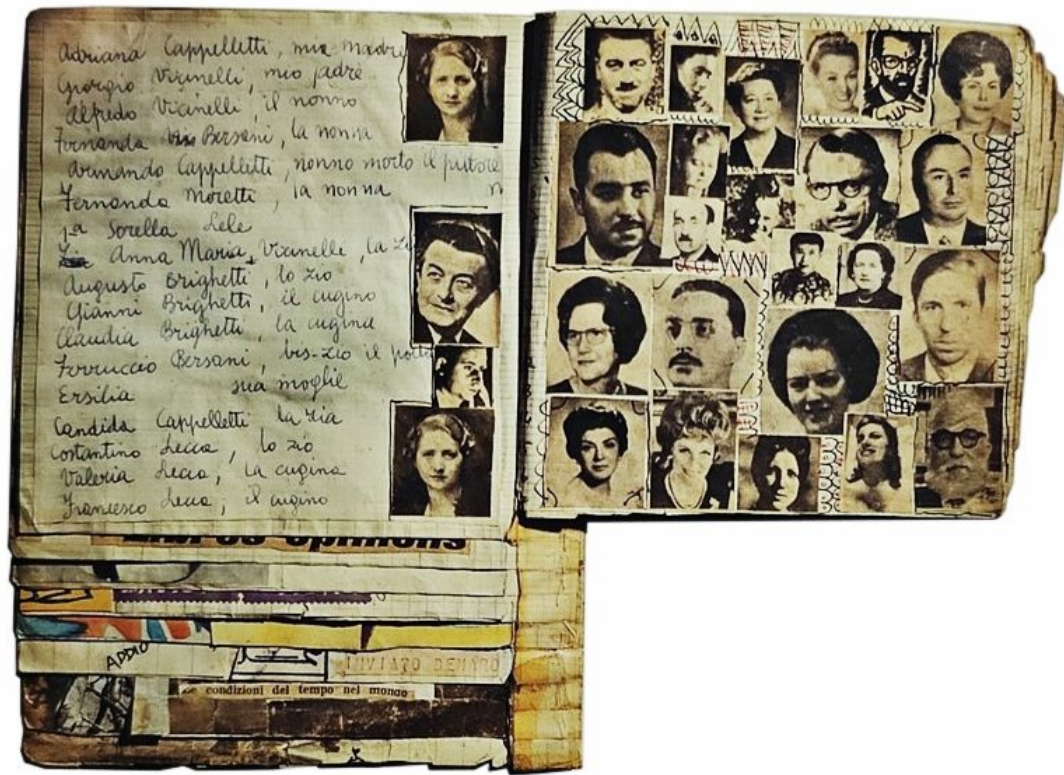 Adriana Cappelletti, mia madre
Giorgio Vicinelli, mio padre
Alfredo Vicinelli, il nonno
Fernanda Bersani, la nonna
Armando Cappelletti, nonno morto il pittore
Fernanda Moretti, la nonna
la Sorella Lele
Anna Maria Vicinelli, la zi
Augusto Brighetti, lo zio
Gianni Brighetti, il cugino
Claudia Brighetti, la cugina
Ferruccio Bersani, bis-zio il poeta
Ersilia sua moglie
Candida Cappelletti la zia
Costantino Lecca, lo zio
Valeria Lecca, la cugina
Francesco Lecca, il cugino
opinions
ADDIO
INVIATO DENARO
condizioni del tempo nel mondo